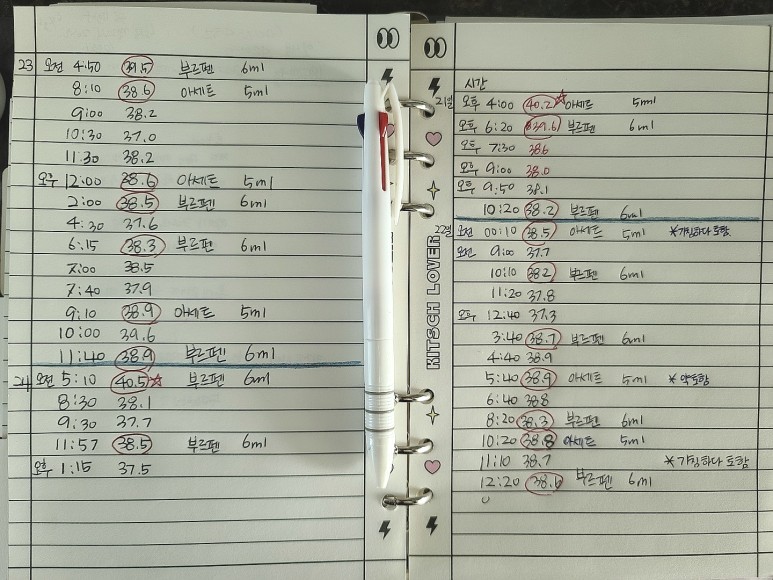 23 오전 4:50 39.5 부르펜 6ml
8:10 38.6 아세트 5ml
9:00 38.2
10:30 37.0
11:30 38.2
오후 12:00 38.6 아세트 5ml
2:00 38.5 부르펜 6ml
4:30 37.6
6:15 38.3 부르펜 6ml
7:00 38.5
7:40 37.9
9:10 38.9 아세트 5ml
10:00 39.6
11:40 38.9 부르펜 6ml
24 오전 5:10 40.5☆ 부르펜 6ml
8:30 38.1
9:30 37.7
11:57 38.5 부르펜 6ml
오후 1:15 37.5
KITSCH LOVER
시간
21일 오후 4:00 40.2☆ 아세트 5ml
오후 6:20 39.6 부르펜 6ml
오후 7:30 38.6
오후 9:00 38.0
오후 9:50 38.1
10:20 38.2 부르펜 6ml
22일 오전 00:10 38.5 아세트 5ml *기침하다 토함
오전 9:00 37.7
10:10 38.2 부르펜 6ml
11:20 37.8
오후 12:40 37.3
3:40 38.7 부르펜 6ml
4:40 38.9
5:40 38.9 아세트 5ml *약토함
6:40 38.8
8:20 38.3 부르펜 6ml
10:20 38.8 아세트 5ml
11:10 38.7 *기침하다 토함
12:20 38.6 부르펜 6ml